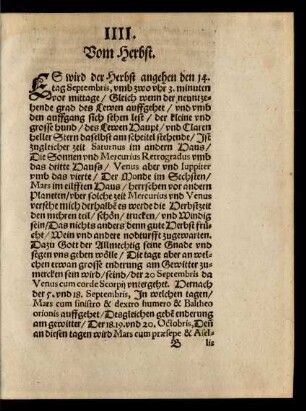 IIII.
Vom Herbst.
ES wird der Herbst angehen den 14.
tag Septembris, vmb zwo vhr 3. minuten
vor mittage / Gleich wenn der neuntze-
hende grad des Lewen auffgehet / vnd vmb
den auffgang sich sehen lest / der kleine vnd
grosse hund / des Lewen Haupt / vnd Claren
heller Stern daselbst am scheitel stehende / Ist
zugleicher zeit Saturnus im andern Haus /
Die Sonnen vnd Mercurius Retrogradus vmb
das dritte Hauss / Venus aber vnd Iuppiter
vmb das vierte / Der Monde im Sechsten /
Mars im eilfften Haus / herrschen vor andern
Planeten / vber solche zeit Mercurius vnd Venus
versehe mich derhalbẽ es werde die Herbszeit
den mehren teil / schön / trucken / vnd Windig
sein / Das nichts anders denn gute Herbst frü-
cht / Wein vnd andere nodturfft zugewarten.
Dazu Gott der Allmechtig seine Gnade vnd
segen vns geben wölle / Die tage aber an wel-
chen etwan grosse enderung am Gewitter zu-
mercken sein wird / seind / der 20 Septembris da
Venus cum corde Scorpij vntergehet. Hernach
der 5. vnd 18. Septembris, In welchen tagen /
Mars cum sinistro & dextro humero & Baltheo
orionis auffgehet / Desgleichen gebẽ enderung
am gewitter / Der 18. 19. vnd 20, Octobris, Deñ
an diesen tagen wird Mars cum præsepe & Asel-
B
lis